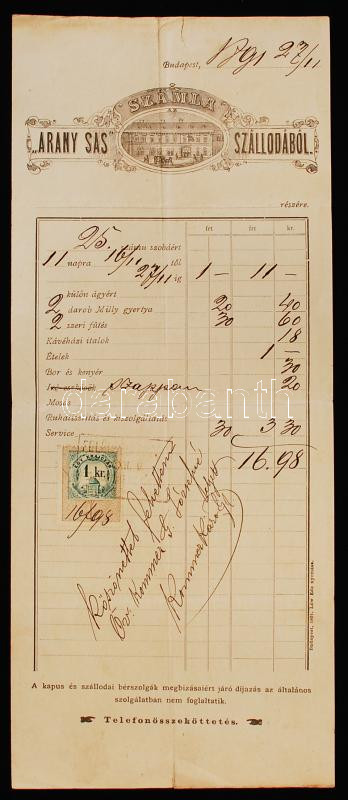 Budapest, 1891 27/11
SZÁMLA
AZ
„ARANY SAS” SZÁLLODÁBÓL.
részére.
frt frt kr.
25. számu szobáért
11 napra 16/11 től
27/11 ig 1 — 11 —
külön ágyért
2 darab Milly gyertya 20 40
2 szeri fütés 30 60
Kávéházi italok 18
Ételek 1 —
Bor és kenyér 30
szappan 20
Mosás
Ruhatisztitás és kiszolgáltatás
Service 30 3 30
16.98
1 kr.
16/98
Köszönettel felvettem
Öv. Kommer F. Józsefné
helyett
Kommer Károly
Budapest, 1891. Löw Ede nyomása.
A kapus és szállodai bérszolgák megbizásaiért járó dijazás az általános
szolgálatban nem foglaltatik.
Telefonösszeköttetés.
darabanth